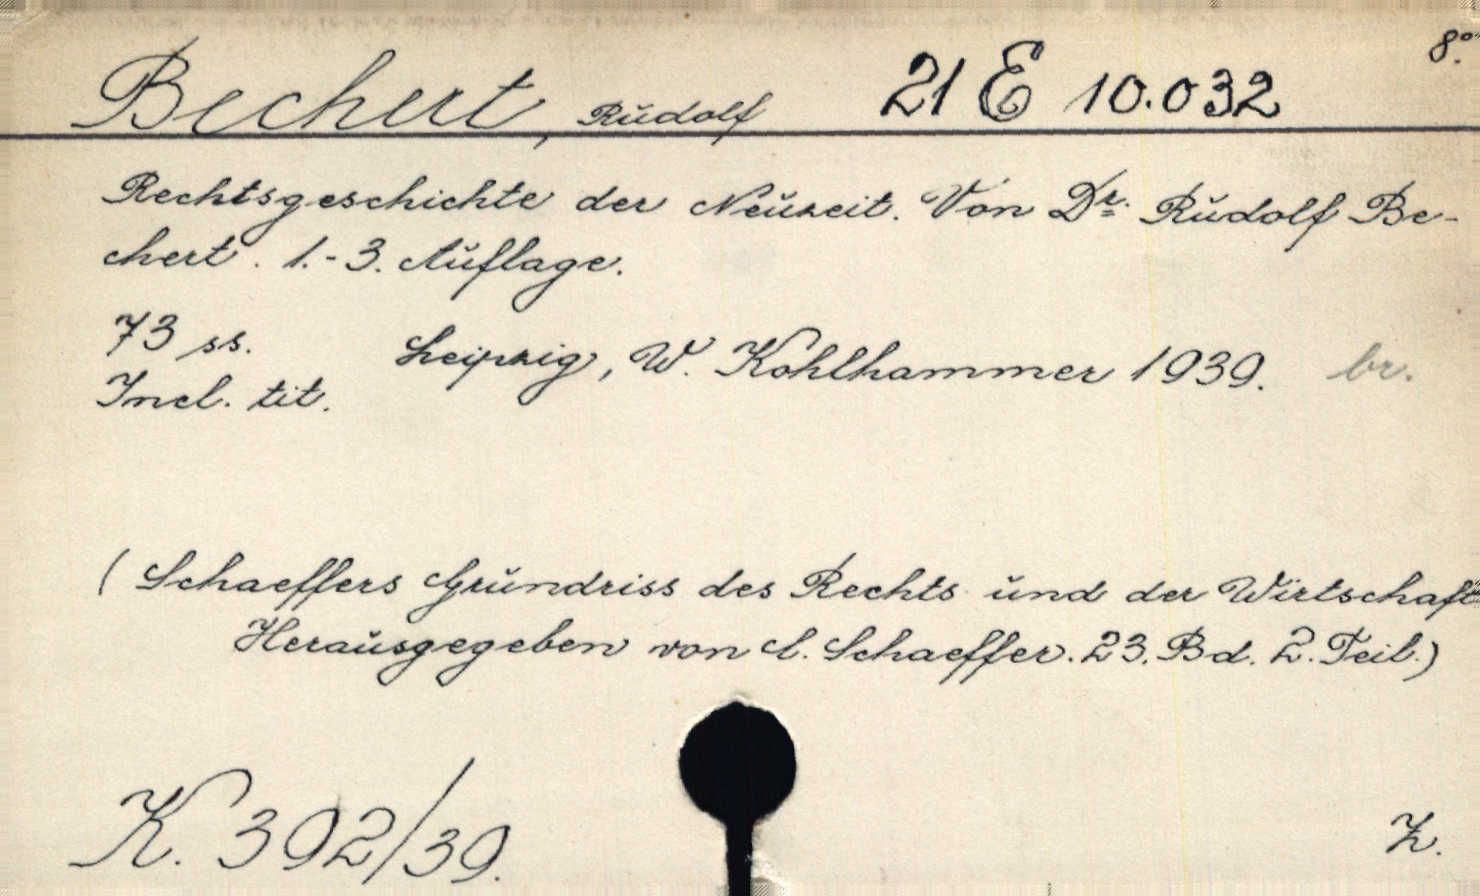 8°.
Bechert, Rudolf 21 E 10.032
Rechtsgeschichte der Neuzeit. Von Dr. Rudolf Be-
chert. 1.-3. Auflage.
73 ss. Leipzig, W. Kohlhammer 1939. br.
Incl. tit.
(Schaeffers Grundriss des Rechts und der Wirtschaft
Herausgegeben von C. Schaeffer. 23. Bd. 2. Teil.)
K. 392/39. Z.